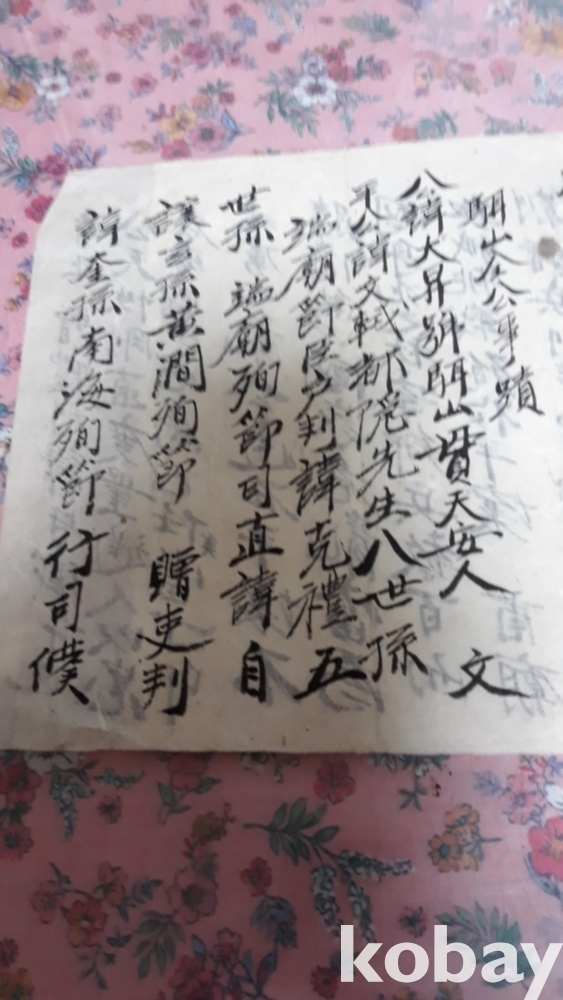 駬山全公事蹟
公諱大昇號駬山貫天安人 文
平公諱文軾都隱先生八世孫
端廟節臣戶判諱克禮 五
世孫 端廟殉節司直諱自
讓玄孫黃澗殉節 贈吏判
諱奎孫南海殉節 行司僕
kobay